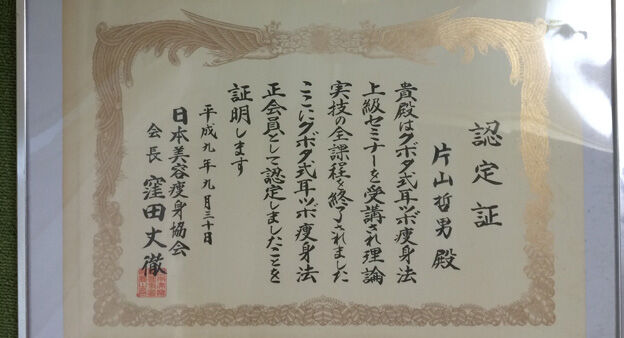 認定証
片山哲男殿
貴殿はクボタ式耳ツボ痩身法
上級セミナーを受講され理論
実技の全課程を終了されました
ここにクボタ式耳ツボ痩身法
正会員として認定しましたことを
証明します
平成九年九月三十日
日本美容痩身協会
会長 窪田丈徹